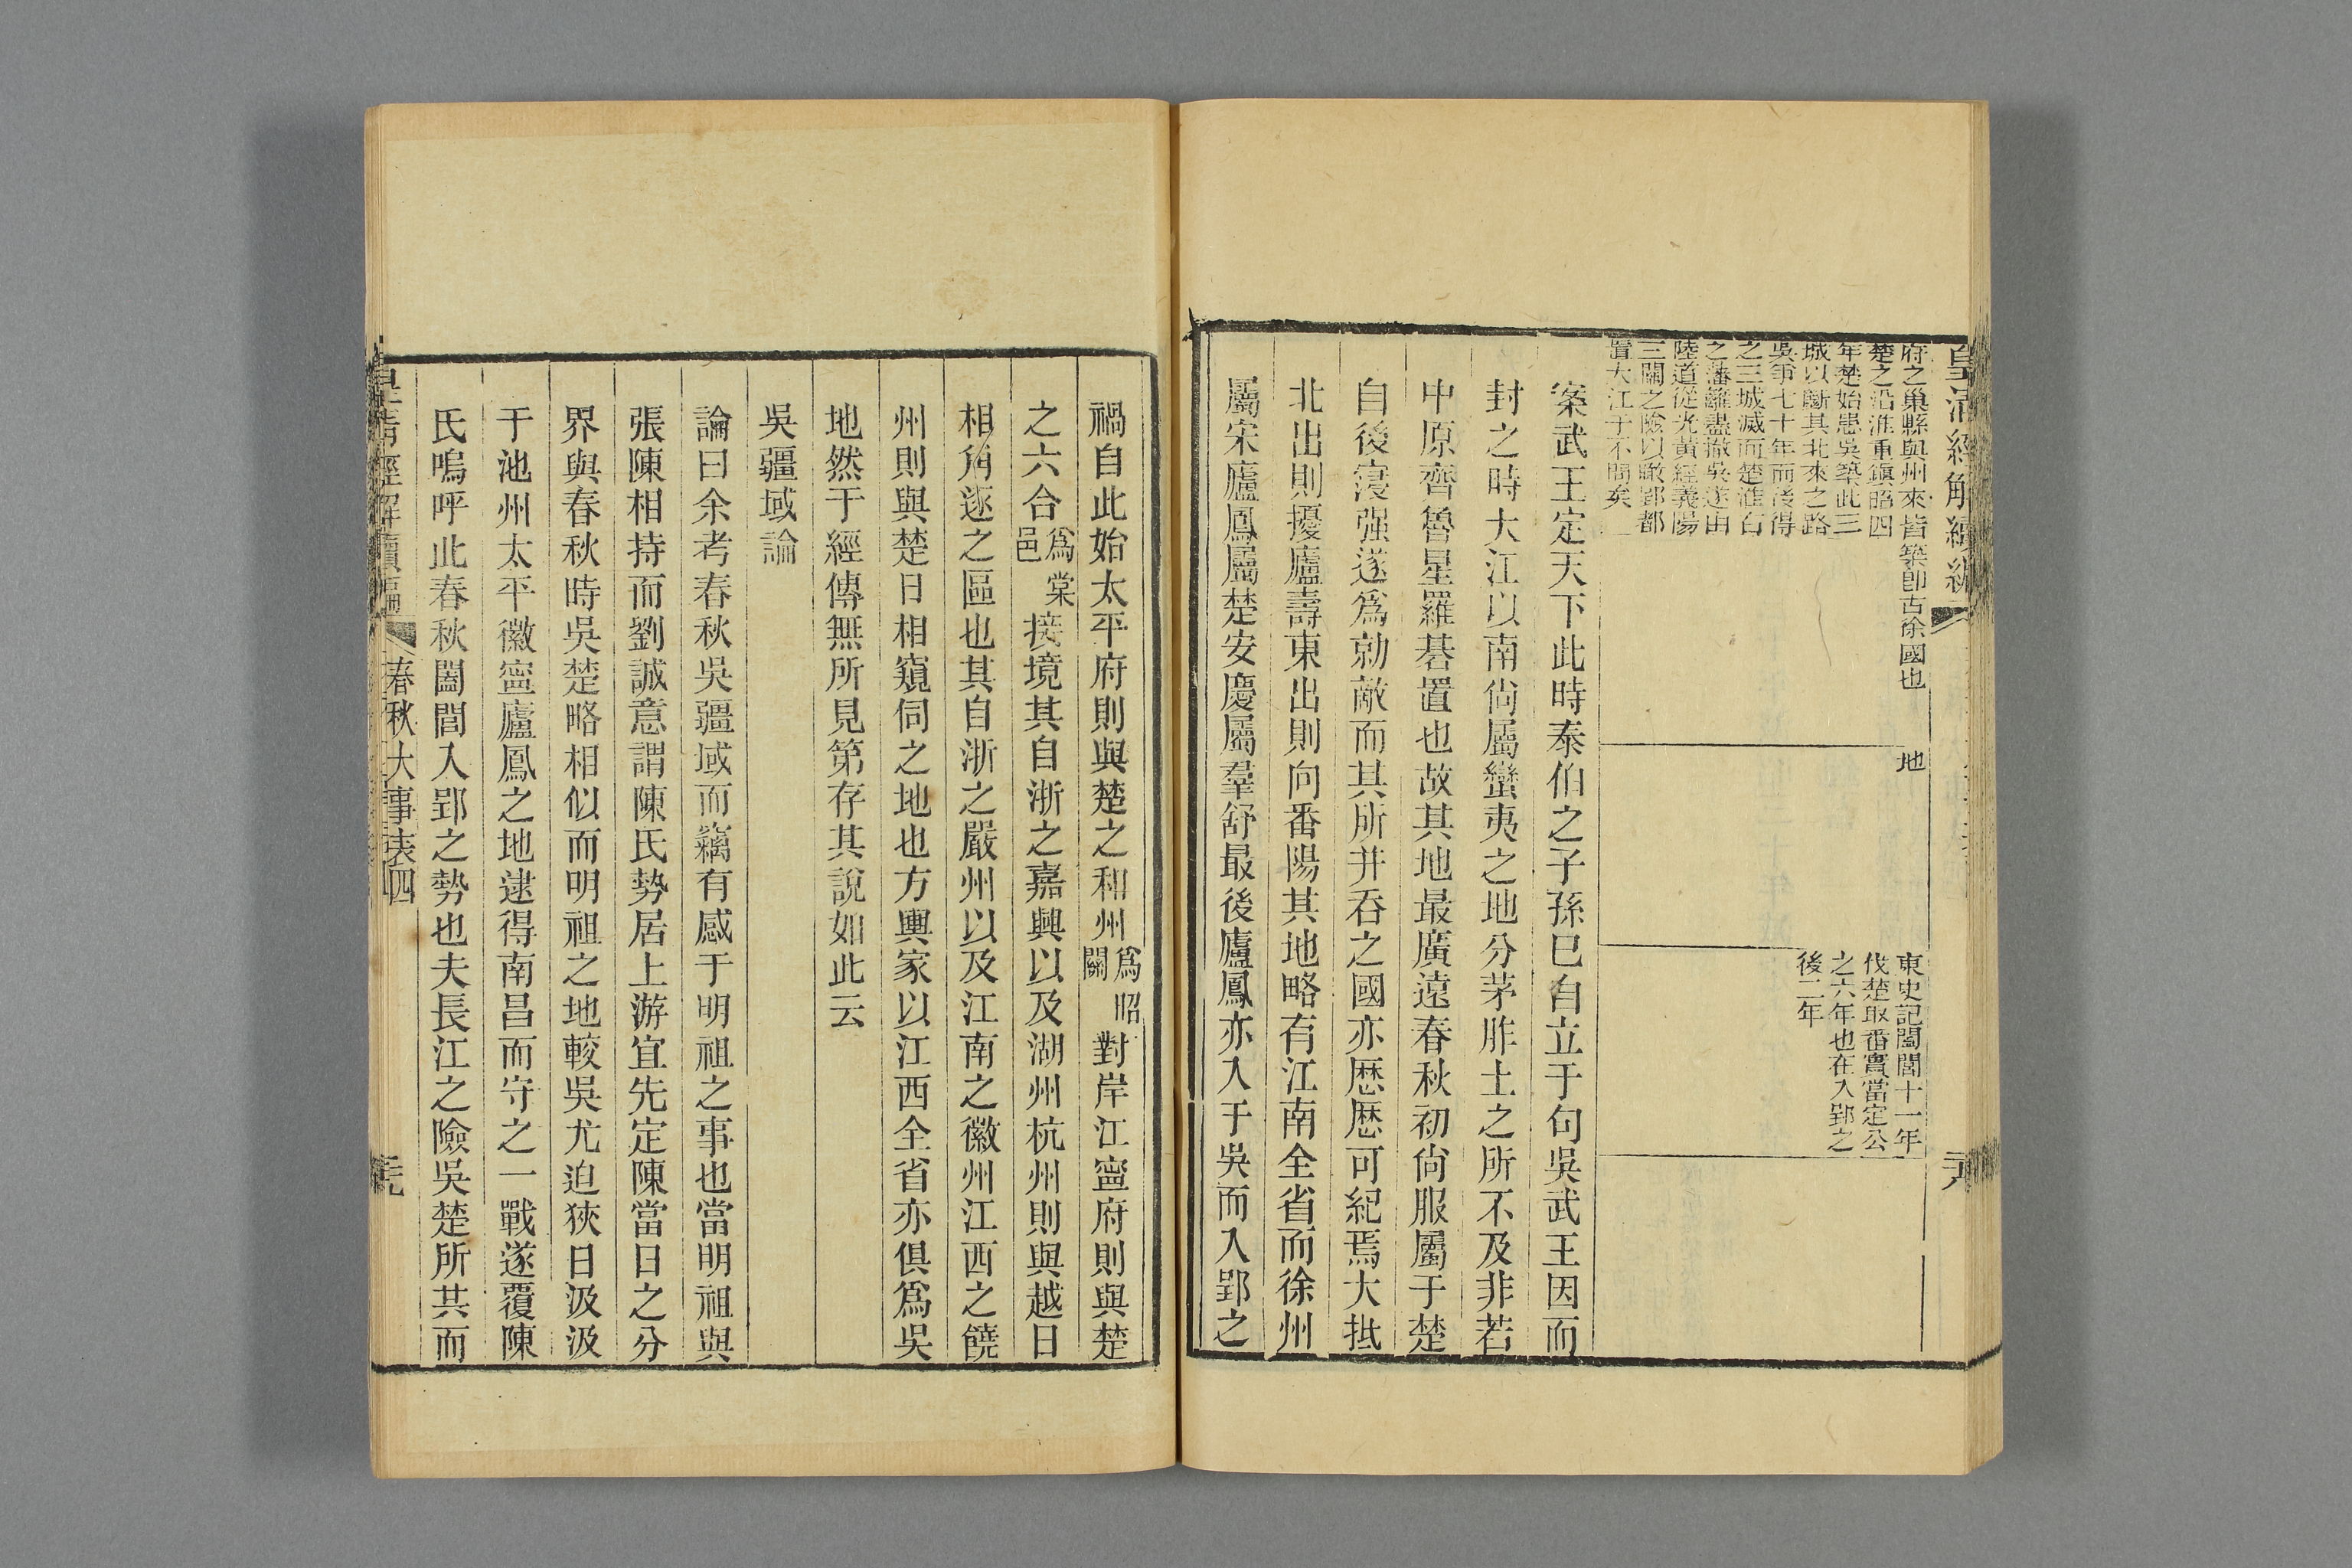 皇清經解續編
府之巢縣與州來皆築卽古徐國也
楚之沿淮重鎭昭四
年楚始患吳築此三
城以斷其北來之路
吳爭七十年而後得
之三城滅而楚淮右
之藩籬盡撤吳遂由
陸道從光黃經義陽
三關之險以瞰郢都
置大江于不問矣
地
東史記闔閭十一年
伐楚取番實當定公
之六年也在入郢之
後二年
案武王定天下此時泰伯之子孫巳自立于句吳武王因而
封之時大江以南尙屬蠻夷之地分茅胙土之所不及非若
中原齊魯星羅碁置也故其地最廣遠春秋初尙服屬于楚
自後寖强遂爲勍敵而其所并吞之國亦厯厯可紀焉大抵
北出則擾廬壽東出則向番陽其地略有江南全省而徐州
屬宋廬鳳屬楚安慶屬羣舒最後廬鳳亦入于吳而入郢之
禍自此始太平府則與楚之和州爲昭關對岸江寧府則與楚
之六合爲棠邑接境其自浙之嘉興以及湖州杭州則與越日
相角逐之區也其自浙之嚴州以及江南之徽州江西之饒
州則與楚日相窺伺之地也方輿家以江西全省亦俱爲吳
地然于經傳無所見第存其說如此云
吳疆域論
論曰余考春秋吳疆域而竊有感于明祖之事也當明祖與
張陳相持而劉誠意謂陳氏勢居上游宜先定陳當日之分
界與春秋時吳楚略相似而明祖之地較吳尤迫狹日汲汲
于池州太平徽寧廬鳳之地逮得南昌而守之一戰遂覆陳
氏嗚呼此春秋闔閭入郢之勢也夫長江之險吳楚所共而
皇淸經解續編
春秋大事表四